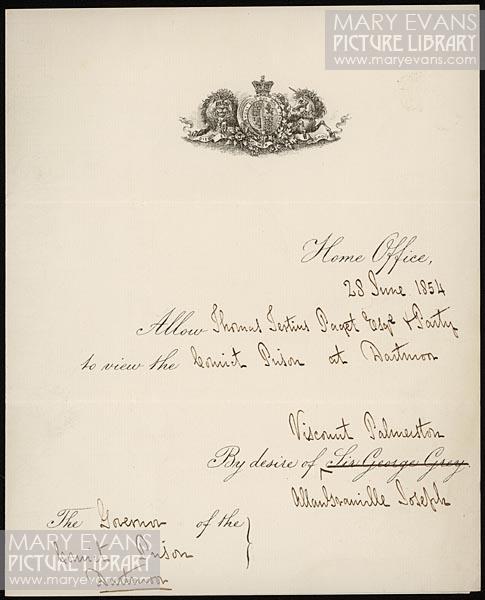 MARY EVANS
PICTURE LIBRARY
www.maryevans.com
Home Office,
28 June 1854
Allow Thomas Tertius Paget Esqr & Party
to view the Convict Prison at Dartmoor
Viscount Palmerston
By desire of Sir George Grey
The Governor of the
Convict Prison
Dartmoor
MARY EVANS
PICTURE LIBRARY
www.maryevans.com